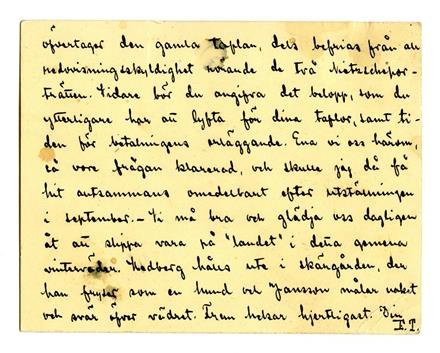 öfvertager den gamla taflan, dels befrias från all
redovisningsskyldighet rörande de två Nietzschepor-
trätten. Vidare bör du angifva det belopp, som du
ytterligare har att lyfta för dina taflor, samt ti-
den för betalningens erläggande. Ena vi oss härom,
så vore frågan klarerad, och skulle jag då få
hit altsammans omedelbart efter utställningen
i september. – Vi må bra och glädja oss dagligen
åt att slippa vara på "landet" i detta gemena
vinterväder. Hedberg hålls ute i skärgården, der
han fryser som en hund och Jansson målar våket
och svär öfver vädret. Frun helsar hjertligast. Din
E.T.